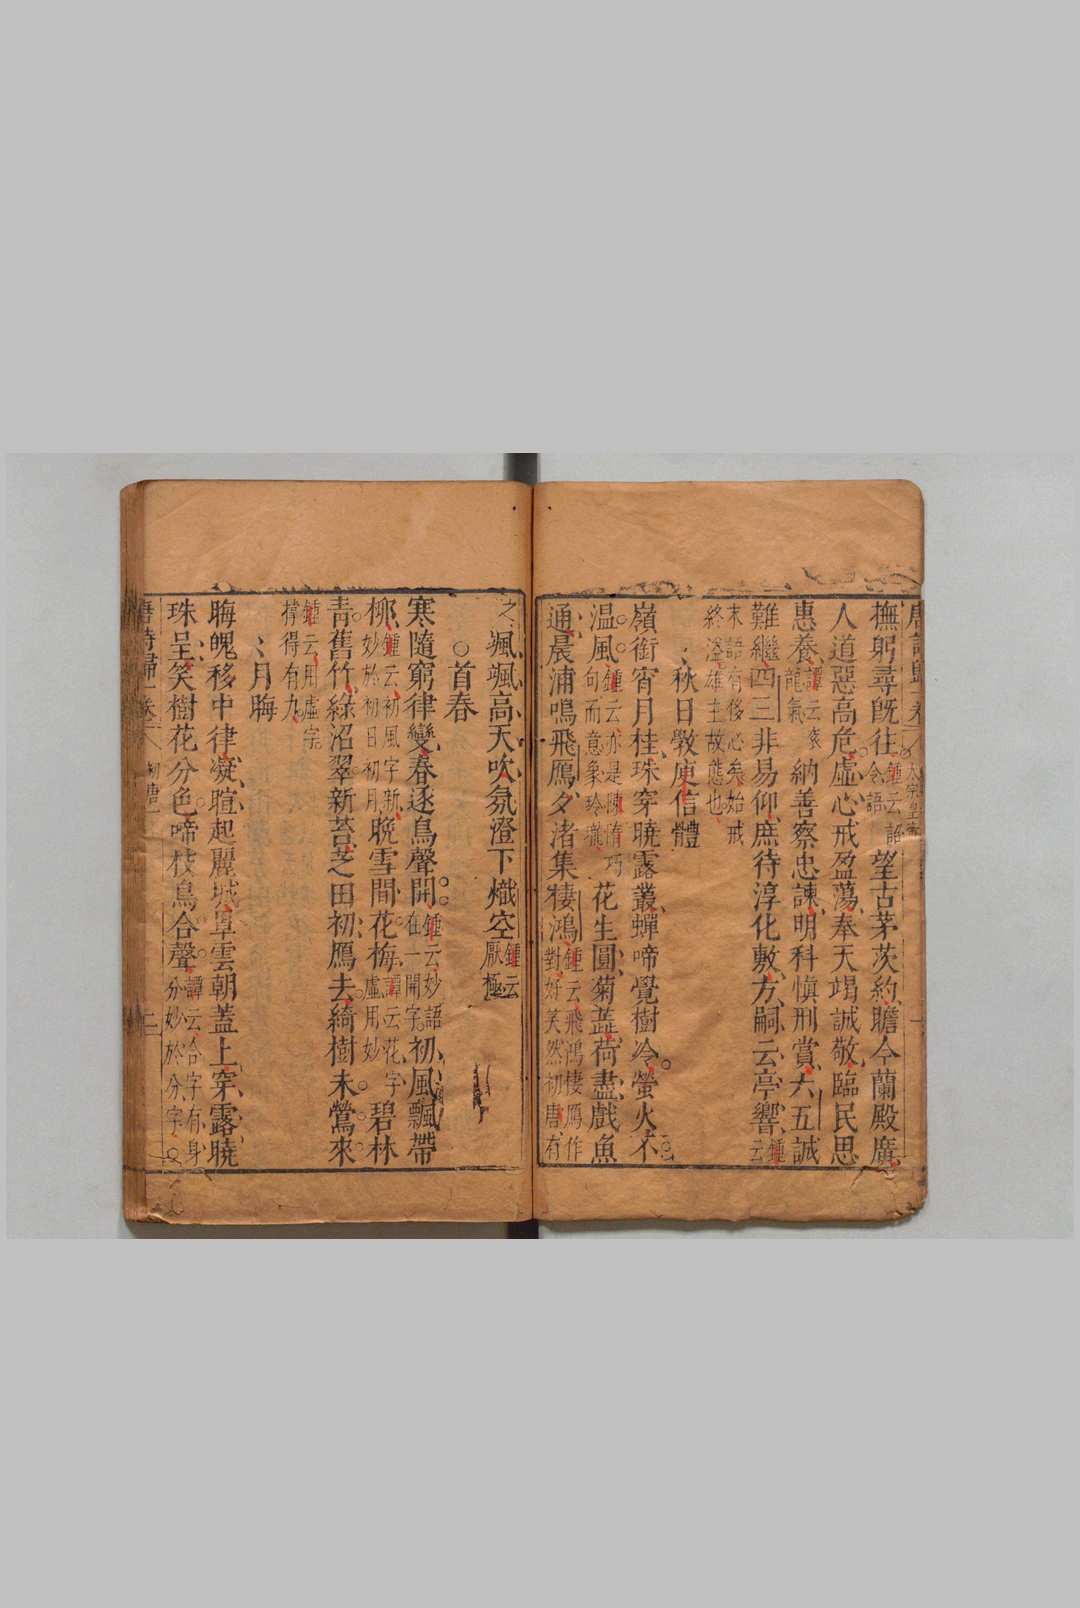 撫躬尋既往鍾云詔令語望古茅茨約瞻今蘭殿廣
人道惡高危虛心戒盈蕩奉天竭誠敬臨民思
惠養譚云袞龍氣納善察忠諫明科慎刑賞六五誠
難繼四三非易仰庶待淳化敷方嗣云亭響鍾云
末語有侈心矣始戒終溢雄主故態也
秋日斆庾信體
嶺銜宵月桂珠穿曉露叢蟬啼覺樹冷螢火不
温風鍾云亦是陳隋巧句而意象玲瓏花生圓菊蕋荷盡戲魚
通晨浦鳴飛鴈夕渚集棲鴻鍾云飛鴻棲鴈作對好笑然初唐有
之颯颯高天吹氛澄下熾空鍾云厭極
○首春
寒隨窮律變春逐鳥聲開鍾云妙語在一開字初風飄帶
柳鍾云初風字新妙於初日初月晚雪間花梅譚云花字虛用妙碧林
青舊竹綠沼翠新苔芝田初鴈去綺樹未鶯來
鍾云用虛字撐得有力
月晦
晦魄移中律凝暄起麗城罩雲朝蓋上穿露曉
珠呈笑樹花分色啼枝鳥合聲譚云合字有身分妙於分字
唐詩歸 卷一 初唐一 二